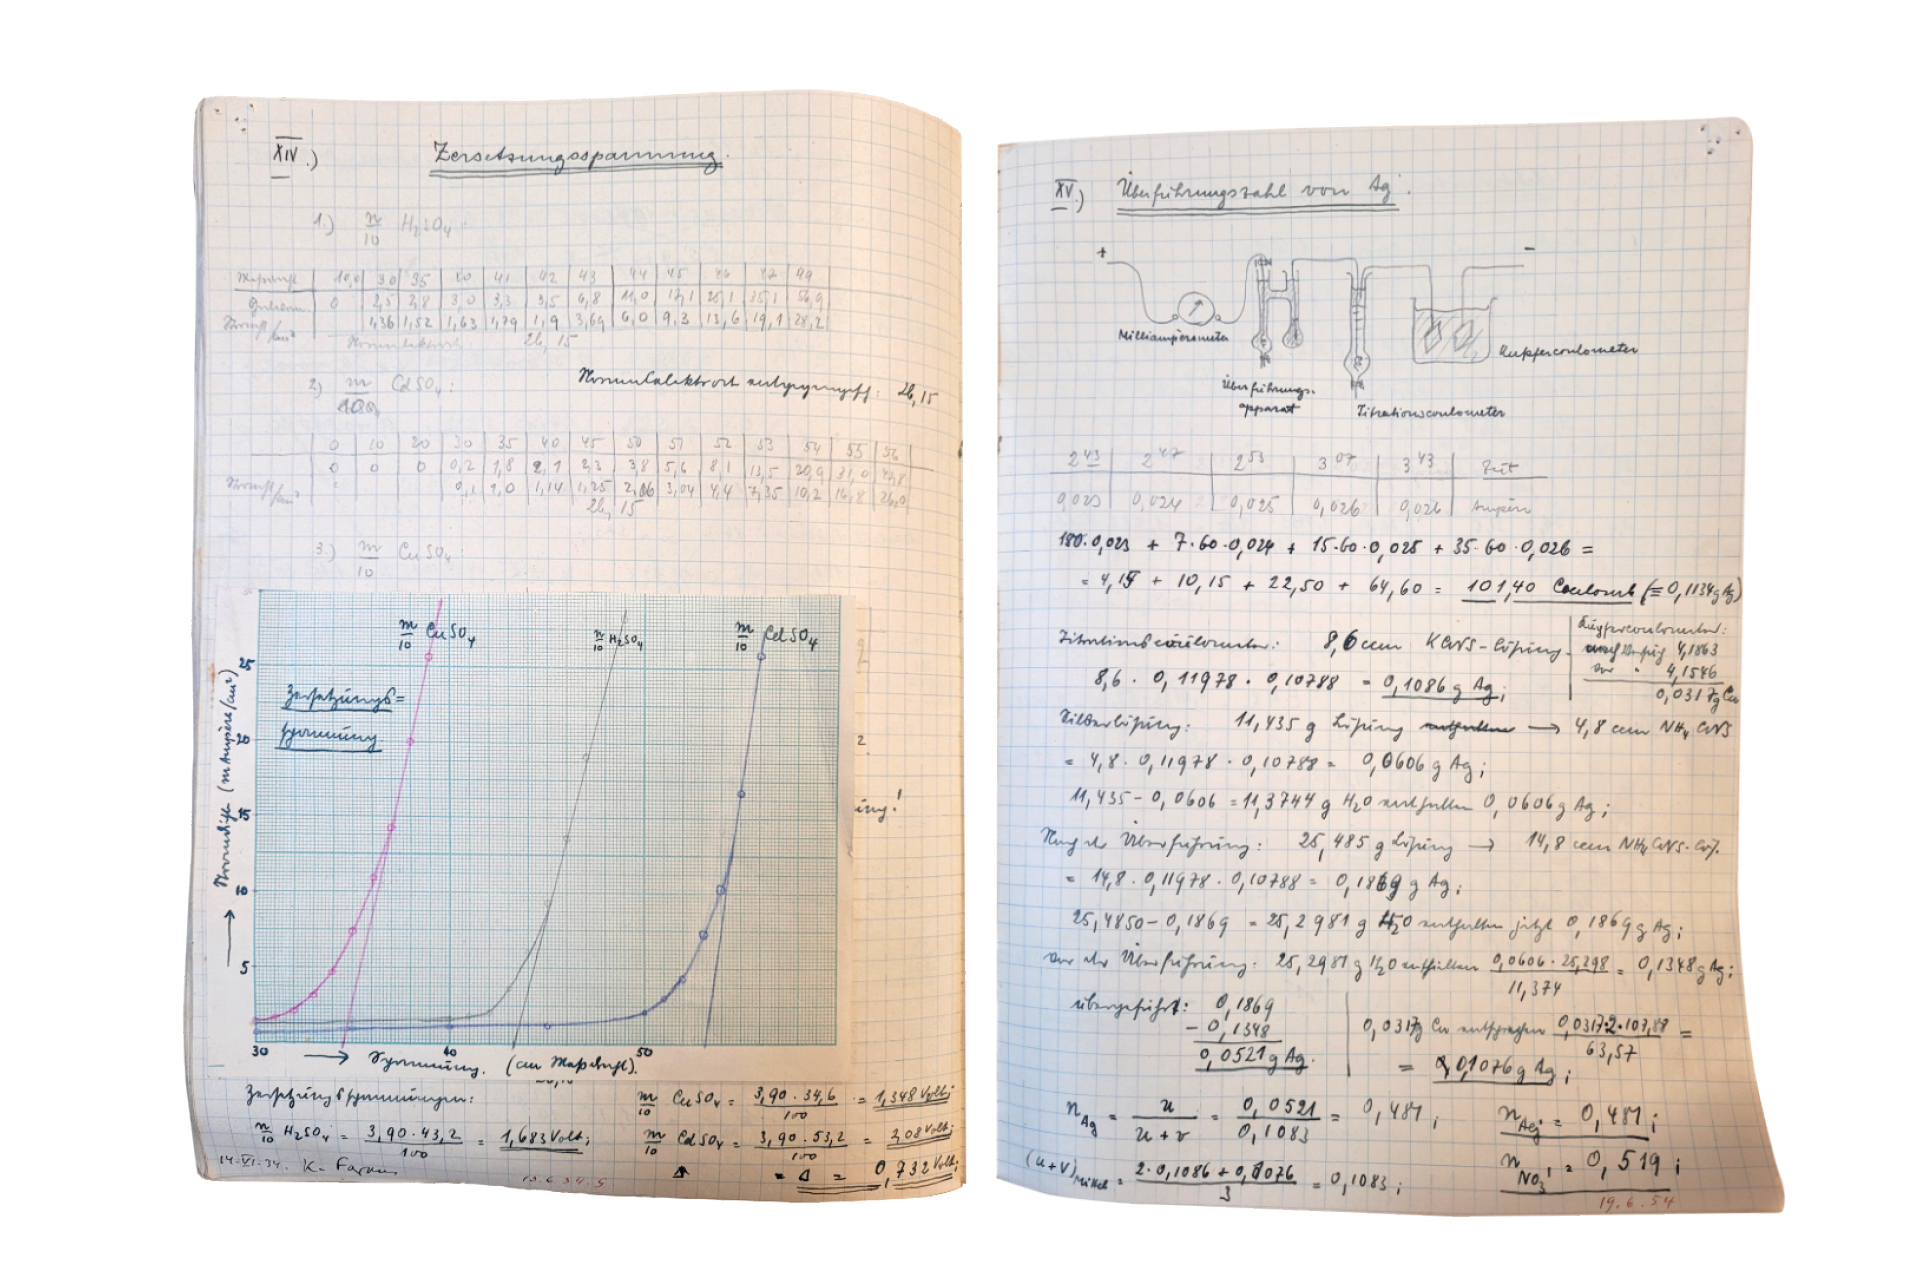 XIV.) Zersetzungsspannung.
1.) n/10 H₂SO₄:
Maßdraht | 10,0 | 30 | 35 | 40 | 41 | 42 | 43 | 44 | 45 | 46 | 47 | 49
0 | 2,5 | 2,8 | 3,0 | 3,3 | 3,5 | 6,8 | 11,0 | 17,1 | 25,1 | 35,1 | 56,9
1,36 | 1,52 | 1,63 | 1,79 | 1,9 | 3,69 | 6,0 | 9,3 | 13,6 | 19,1 | 28,2
Normalelektrode: 26,15
2) m/100 CdSO₄: Normalelektrode : 26,15
0 | 10 | 20 | 30 | 35 | 40 | 45 | 50 | 51 | 52 | 53 | 54 | 55 | 56
0 | 0 | 0 | 0,2 | 1,8 | 2,1 | 2,3 | 3,8 | 5,6 | 8,1 | 13,5 | 20,9 | 31,0
0,1 | 1,0 | 1,14 | 1,25 | 2,06 | 3,04 | 4,4 | 7,35 | 10,2 | 16,8 | 26,0
26,15
3.) m/10 CuSO₄
m/10 CuSO₄
n/10 H₂SO₄
m/10 CdSO₄
Zersetzungs=
spannung.
Stromdichte (mAmpère/cm²)
25
20
15
10
5
30 40 50
Spannung. (cm Maßdraht).
Zersetzungsspannungen:
m/10 CuSO₄ = 3,90 · 34,6 / 100 = 1,348 Volt;
n/10 H₂SO₄ = 3,90 · 43,2 / 100 = 1,683 Volt;
m/10 CdSO₄ = 3,90 · 53,2 / 100 = 2,08 Volt;
= Δ = 0,732 Volt;
14-VI-34. K.
XV.) Überführungszahl von Ag.
+ −
Milliamperemeter
Überführungs-
apparat
Titrationscoulometer
Kupfercoulometer
2⁴³ | 2⁴⁷ | 2⁵³ | 3⁰⁷ | 3⁴³ | Zeit
0,023 | 0,024 | 0,025 | 0,026 | 0,026 | Ampère
180·0,023 + 7·60·0,024 + 15·60·0,025 + 35·60·0,026 =
= 4,15 + 10,15 + 22,50 + 64,60 = 101,40 Coulomb (≡ 0,1134 g Ag)
Titrationscoulometer: 8,6 ccm KCNS-Lösung.
8,6 · 0,11978 · 0,10788 = 0,1086 g Ag;
Kupfercoulometer:
nach Versuch 4,1863
vor " 4,1546
0,0317 g Cu
Silberlösung: 11,435 g Lösung → 4,8 ccm NH₄CNS
= 4,8 · 0,11978 · 0,10788 = 0,0606 g Ag;
11,435 − 0,0606 = 11,3744 g H₂O enthalten 0,0606 g Ag;
Nach der Überführung: 25,485 g Lösung → 14,8 ccm NH₄CNS-Lös.
= 14,8 · 0,11978 · 0,10788 = 0,1869 g Ag;
25,4850 − 0,1869 = 25,2981 g H₂O enthalten jetzt 0,1869 g Ag;
vor der Überführung: 25,2981 g H₂O enthalten 0,0606 · 25,298 / 11,374 = 0,1348 g Ag;
übergeführt: 0,1869
− 0,1348
0,0521 g Ag.
0,0317 g Cu entsprechen 0,0317·2·107,88 / 63,57 =
= 0,1076 g Ag;
n Ag = u / u + v = 0,0521 / 0,1083 = 0,481;
n Ag = 0,481;
(u+v) Mittel = 2·0,1086 + 0,1076 / 3 = 0,1083;
n NO₃' = 0,519;